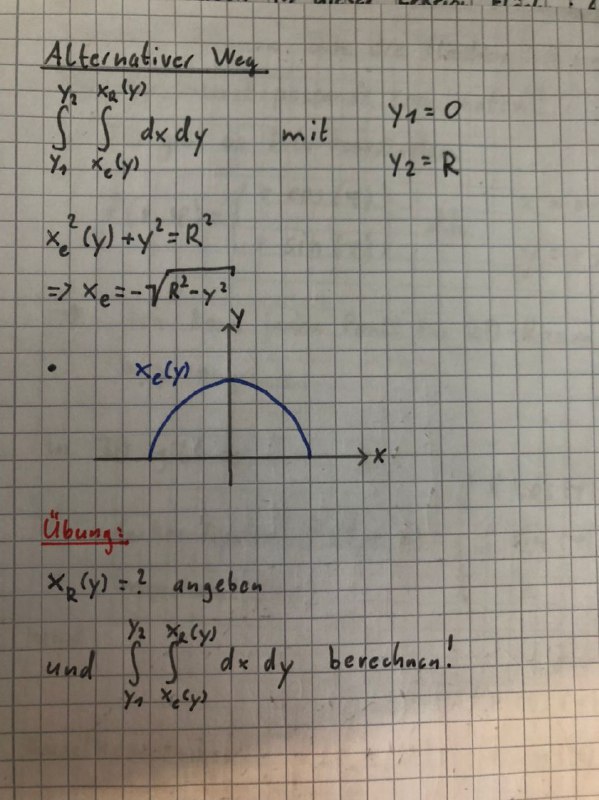 Alternativer Weg
∫_{y1}^{y2} ∫_{x_e(y)}^{x_R(y)} dx dy mit y1 = 0
y2 = R
x_e²(y) + y² = R²
=> x_e = -√(R² - y²)
y
• x_e(y)
x
Übung:
x_R(y) = ? angeben
und ∫_{y1}^{y2} ∫_{x_e(y)}^{x_R(y)} dx dy berechnen!